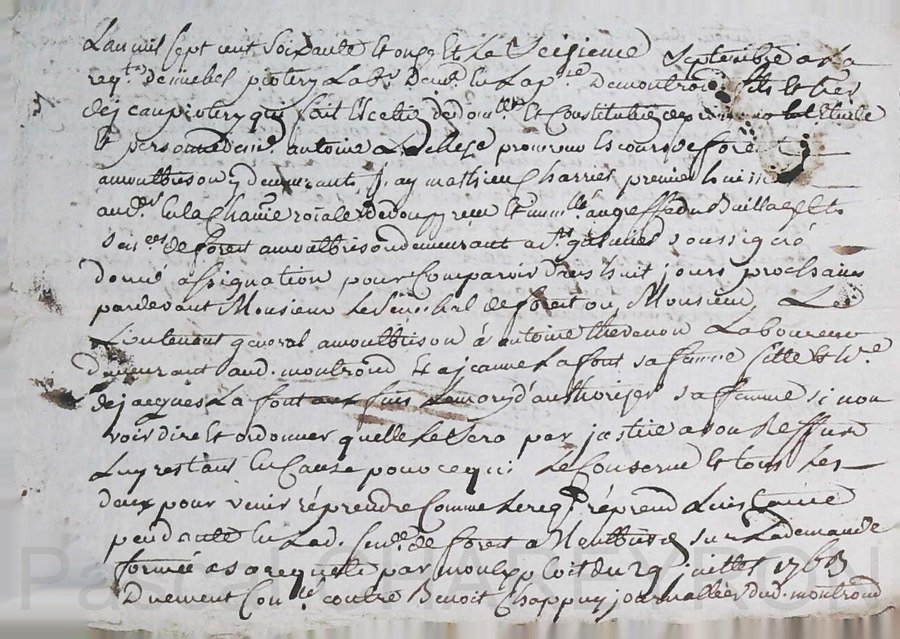 L'an mil sept cent soixante et onze et le seizieme septembre a la
reqte de michel piotery Labr demt en la psse de montrond fils et her
de jean piotery qui fait Election de dom.lle et Constitution de
et personne de me antoine procureur Es cours de forest
a montbrison y demeurant, J'ay mathieu Charles premier huissier
aud. en la Chanie roiale de et imm.lle au greffe du Bailliage et
Senee de forest a montbrison demeurant a St galmier soussigné
donné assignation pour Comparoir dans huit jours prochains
pardevant Monsieur le Senechal de forest ou Monsieur Le
Lieutenant general a montbrison à antoine thevenon Laboureur
demeurant aud. montrond et a jeanne Lafont sa femme fille et hre
de jacques Lafont aux fins Lemary d'authoriser sa femme si non
voir dire et ordonner quelle le sera par justice a son Reffus
Luy restant en Cause pour ce qui le Conserne et tous les
deux pour venir réprendre Comme le reqt réprend L'instance
pendante en Lad. Senlle de forest a Montbrison sur La demande
formée a sa requete par mon exploit du 29 juillet 1763
Duement Con.lé contre Benoit Chappuy journallier dud. montrond
Pa CHARTEYRON